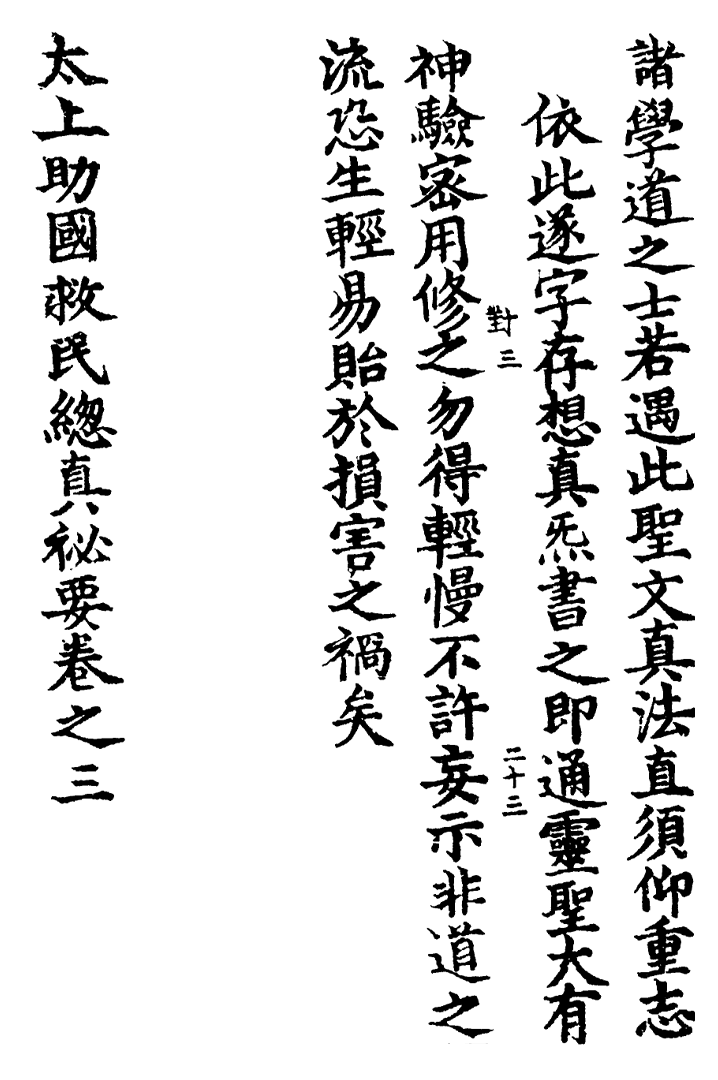 諸學道之士若遇此聖文真法直須仰重志
依此逐字存想真炁書之即通靈聖大有
對三
二十三
神驗密用修之勿得輕慢不許妄示非道之
流恐生輕易貽於損害之禍矣
太上助國救民緫真祕要卷之三